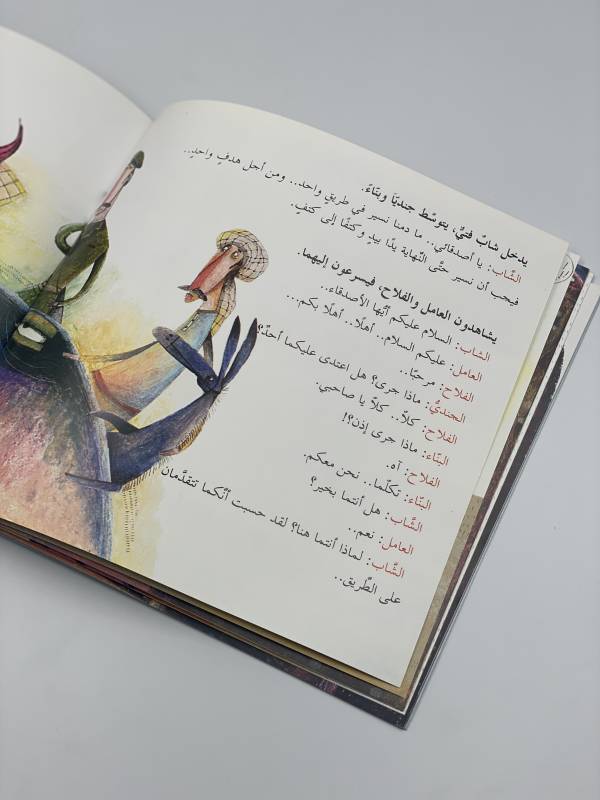 يدخل شابٌ فتيٌّ، يتوسّط جنديّاً وبنّاءً.
الشّاب: يا أصدقائي.. ما دمنا نسير في طريقٍ واحد.. ومن أجل هدفٍ واحدٍ..
فيجب أن نسير حتَّى النّهاية يدًا بيدٍ وكتفًا إلى كتفٍ.
يشاهدون العامل والفلاح، فيسرعون إليهما.
الشاب: السلام عليكم أيُّها الأصدقاء..
العامل: عليكم السلام.. أهلًا.. أهلًا بكم...
الفلاح: مرحبًا..
الجنديُّ: ماذا جرى؟ هل اعتدى عليكما أحدٌ؟
الفلاح: كلَّا.. كلَّا يا صاحبي.
البنّاء: ماذا جرى إذن؟!
الفلاح: آه.
البنّاء: تكلّما.. نحن معكم.
الشّاب: هل أنتما بخير؟
العامل: نعم..
الشّاب: لماذا أنتما هنا؟ لقد حسبت أنّكما تتقدَّمان
على الطّريق..